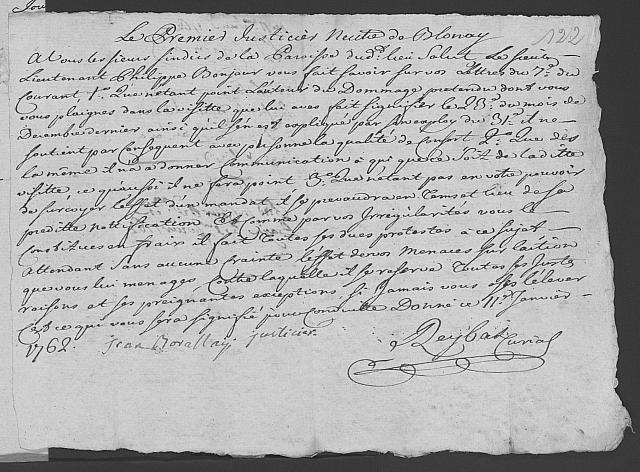 Jou
122
Le Premier Justicier Neutre de Blonay
A Vous les sieurs sindics de la Paroisse du d.t lieu Salut. Le sieur
Lieutenant Philippe Bonjour vous fait Savoir sur vos Lettres du 7.e du
Courant 1.o Que n'etant point L'auteur du Dommage pretendu dont vous
vous plaignes dans la visitte que lui aves fait signifier le 23.e du mois de
Decembre dernier ainsi qu'il s'en est expliqué par du 31.e il ne
soutient par Consequent avec personne la qualité de Consort 2.o Que dès
la même il n'a à donner Communication à qui que ce soit de la ditte
visitte, ce qu'aussi il ne fera point 3.o Que n'étant pas en votre pouvoir
de surcoyer l'effet d'un mandat, il se prevaudra en Tems et lieu de sa
preditte notification Et comme par vos Irregularités vous le
Constitues en fraix il fait Toutes ses dues protestes à ce sujet
Attendant Sans aucune crainte l'effet de vos Menaces sur l'action
que vous lui menagés Contre laquelle il se reserve Toutes ses Justes
raisons et ses preignantes exceptions Si Jamais vous osés l'elever
C'est ce qui vous sera signifié pour Conduitte Donné ce 11.e Janvier
1762. Jean justicier
Curial